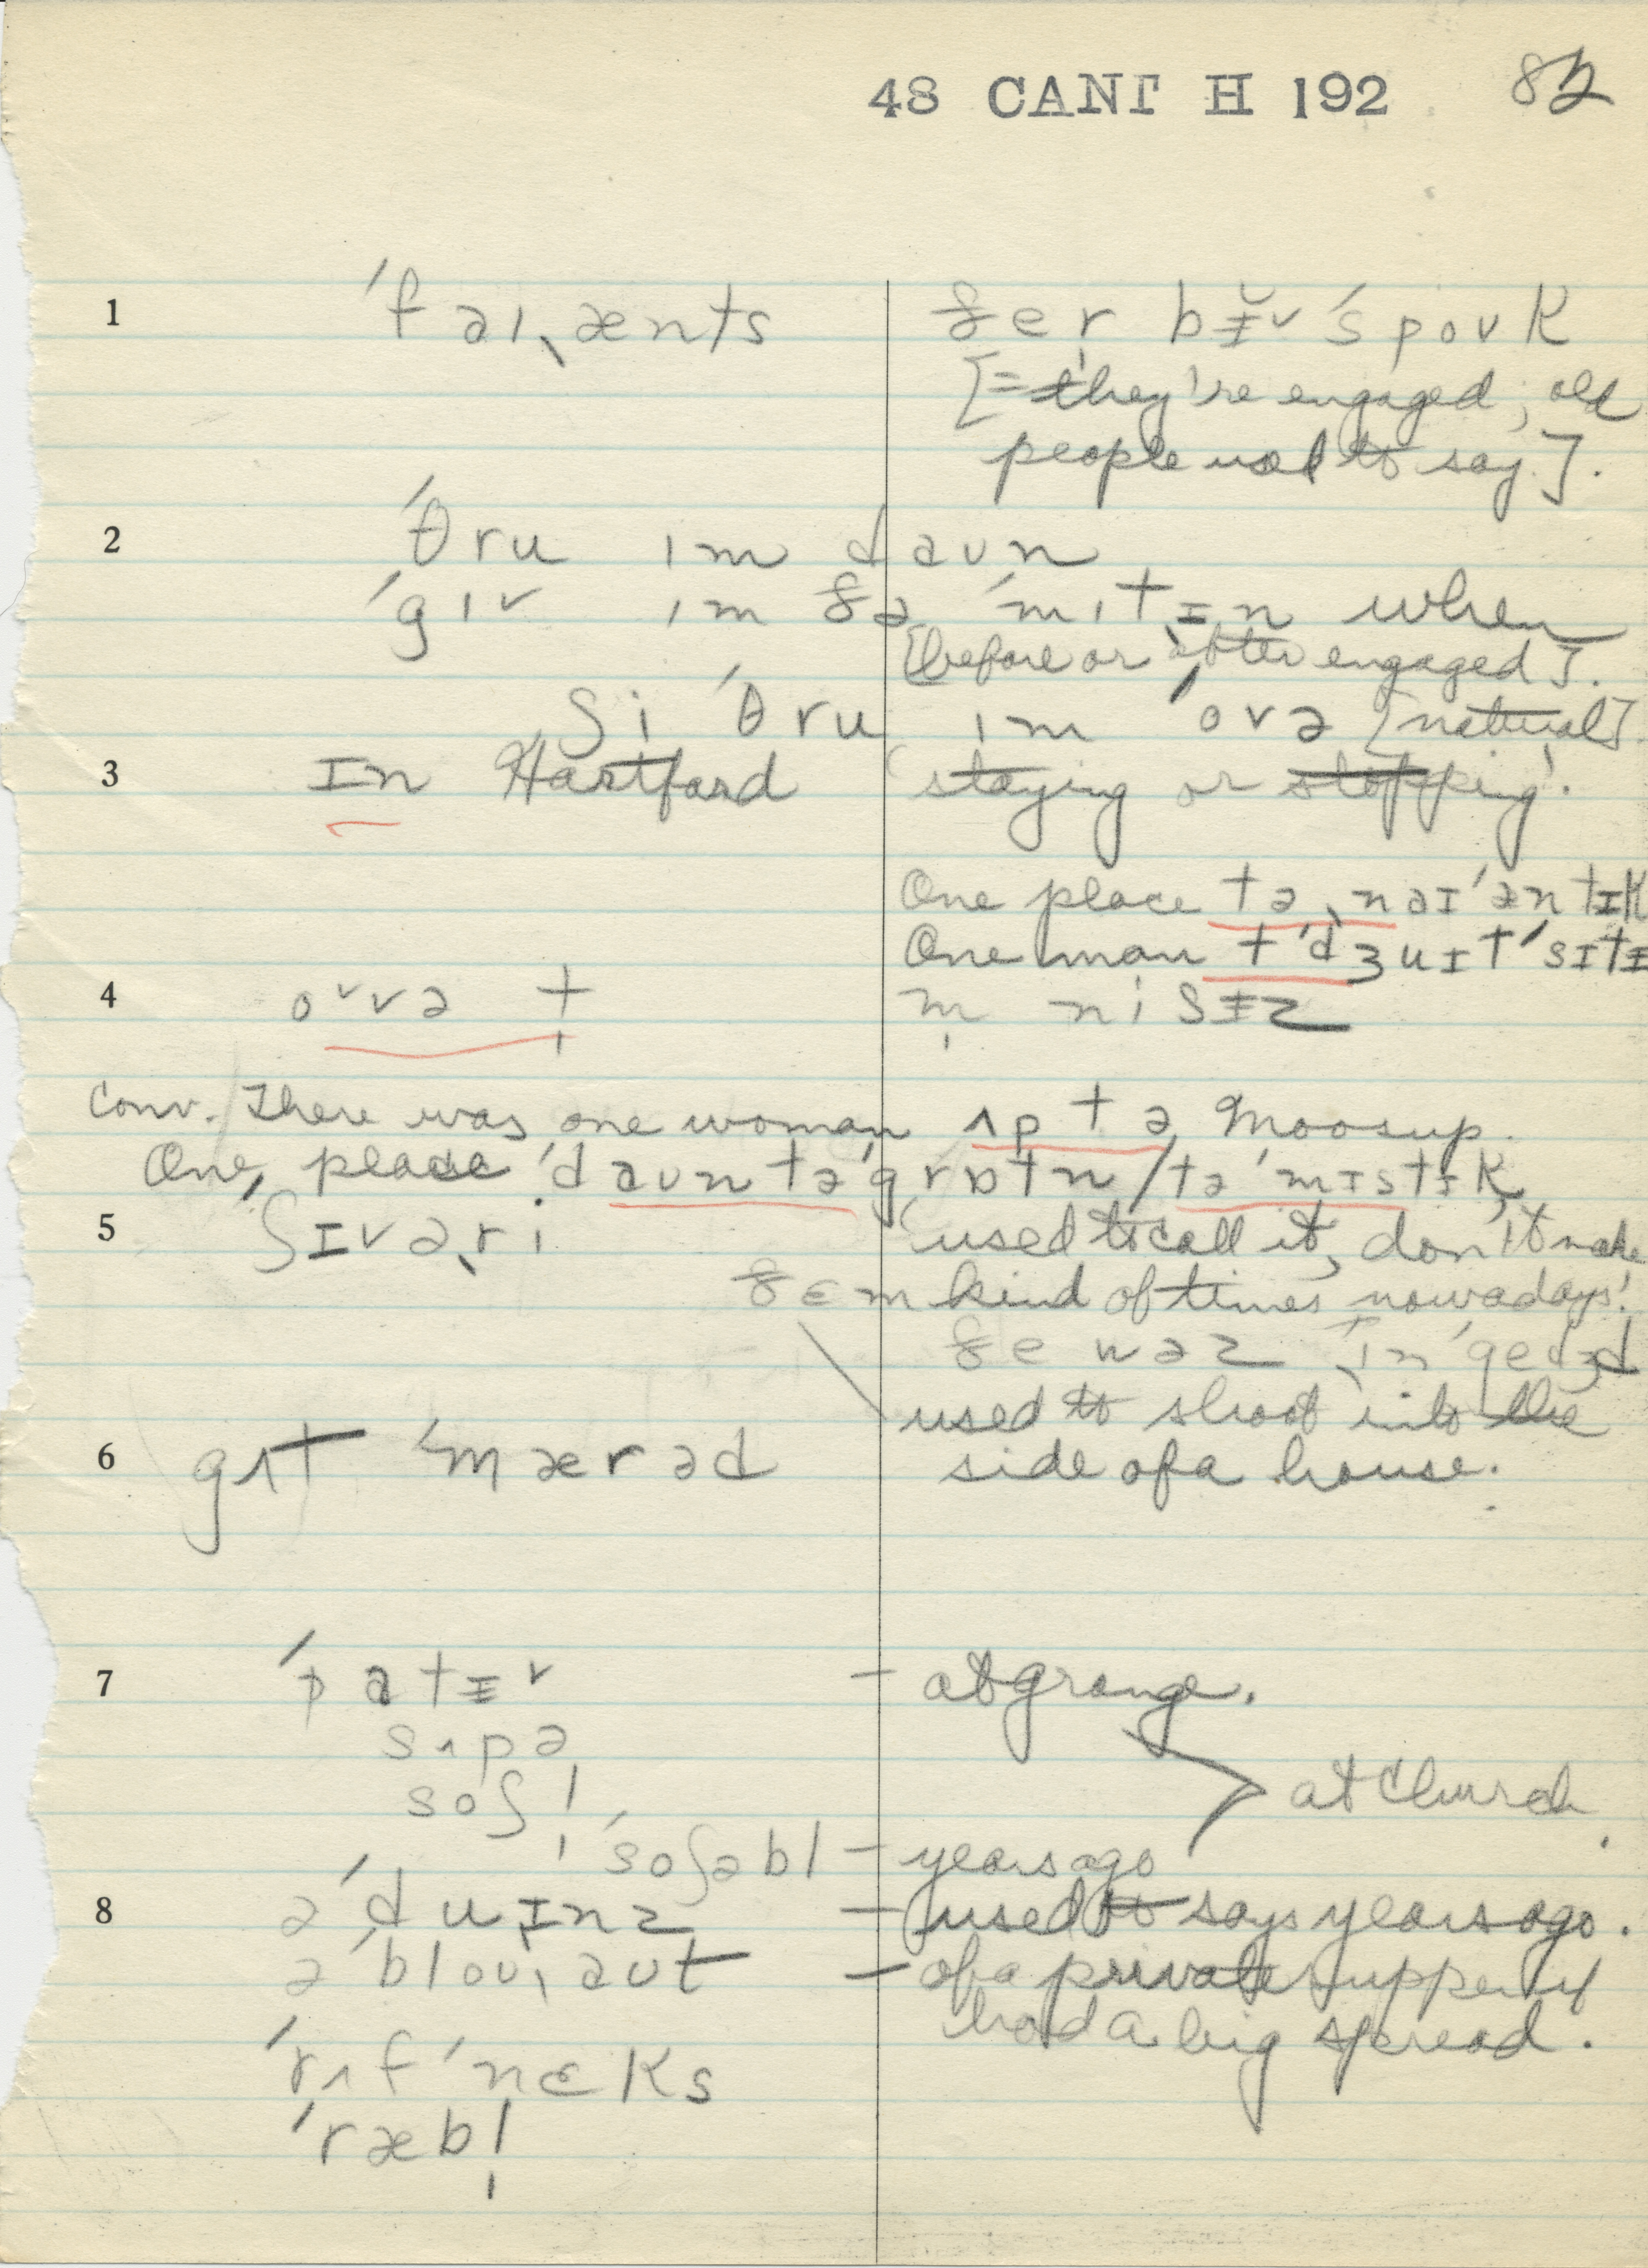 48 CANT H 192 82
1 ˈfaɪˌænts ðer bɪˈspoʊk
[= they're engaged; old
people used to say].
2 ˈθru ɪm daʊn
ˈgɪv ɪm ðə ˈmɪtɨn when
[before or after engaged].
ʃi ˈθru ɪm ˈovə [natural].
3 In Hartford 'staying or stopping'.
One place tə ˌnaɪˈæntɨk
One man t ˈdʒuɪt ˈsɪtɨ
4 ovə t m̩ niʃɨz
Conv. There was one woman ʌp tə Moosup.
One place ˈdaʊn tə ˈgrɒtn / tə ˈmɪstɨk
5 ʃɪvəˌri 'used to call it, don't make
ðɛm kind of times nowadays'.
ðe wəz ɪnˈgedʒd
used to shoot into the
6 gʌt ˈmærəd side of a house.
7 ˈpatɨ – at grange.
sʌpə
soʃl̩ at church.
ˈsoʃəbl – years ago
8 əˈduɪnz – [used to says years ago.
əˈbloʊˌaʊt – of a private supper if
had a big spread.
ˈrʌf ˈnɛks
ˈræbl̩